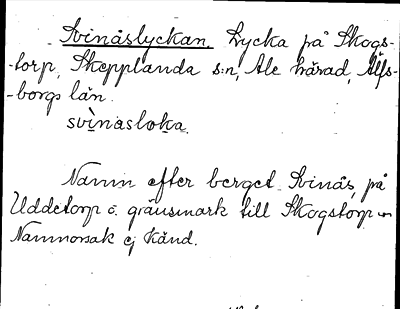 Svinåslyckan, Lycka på Skogs-
-torp, Skepplanda s:n, Ale härad, Älfs-
-borgs län.
svìnasloka.
Namn efter berget Svinås, på
Uddetorp o. gränsmark till Skogstorp
Namnorsak ej känd.